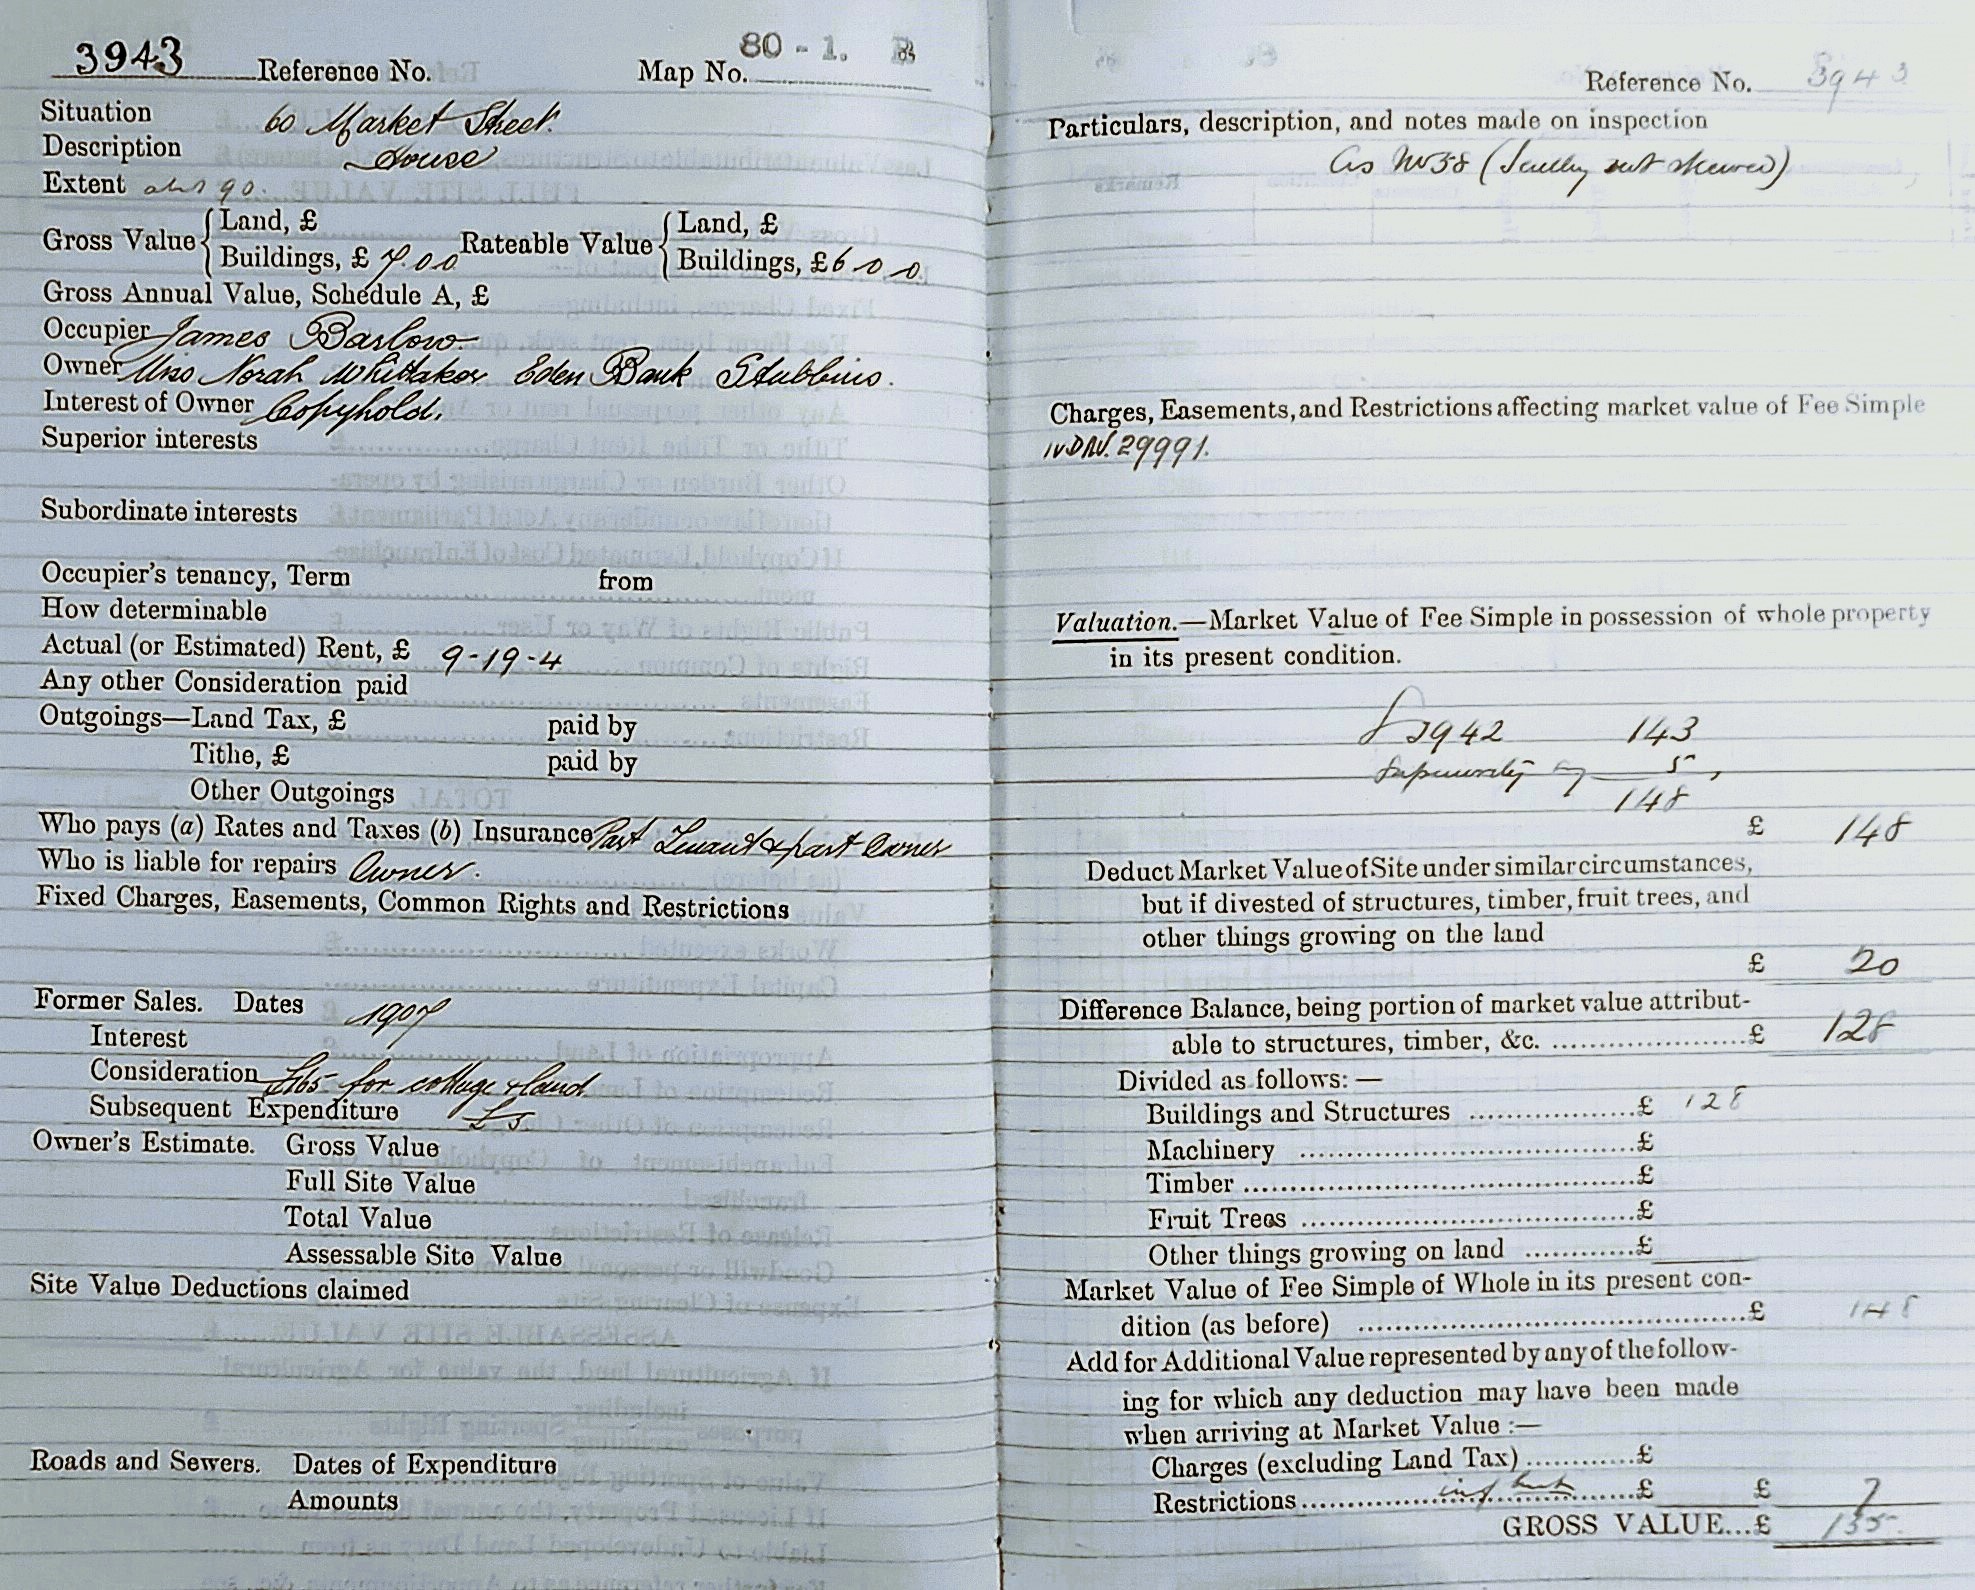 3943 Reference No. Map No. 80 - 1. B
Situation 60 Market Street.
Description House
Extent 90.
Gross Value { Land, £ Rateable Value { Land, £
Buildings, £ 7.0.0 Buildings, £ 6.0.0
Gross Annual Value, Schedule A, £
Occupier James Barlow
Owner Miss Norah Whittaker Eden Bank Stubbins.
Interest of Owner Copyhold.
Superior interests
Subordinate interests
Occupier's tenancy, Term from
How determinable
Actual (or Estimated) Rent, £ 9-19-4
Any other Consideration paid
Outgoings—Land Tax, £ paid by
Tithe, £ paid by
Other Outgoings
Who pays (a) Rates and Taxes (b) Insurance Part Tenant & part Owner
Who is liable for repairs Owner.
Fixed Charges, Easements, Common Rights and Restrictions
Former Sales. Dates 1907
Interest
Consideration £165 for cottage & land
Subsequent Expenditure £5
Owner's Estimate. Gross Value
Full Site Value
Total Value
Assessable Site Value
Site Value Deductions claimed
Roads and Sewers. Dates of Expenditure
Amounts
Reference No. 3943
Particulars, description, and notes made on inspection
As No 58 (Scullery not skewed)
Charges, Easements, and Restrictions affecting market value of Fee Simple
29991.
Valuation.—Market Value of Fee Simple in possession of whole property
in its present condition.
3942 143
Superiority 5
148
£ 148
Deduct Market Value of Site under similar circumstances,
but if divested of structures, timber, fruit trees, and
other things growing on the land
£ 20
Difference Balance, being portion of market value attribut-
able to structures, timber, &c. ....................£ 128
Divided as follows: —
Buildings and Structures ....................£ 128
Machinery ....................£
Timber ....................£
Fruit Trees ....................£
Other things growing on land ............£
Market Value of Fee Simple of Whole in its present con-
dition (as before) ....................£ 148
Add for Additional Value represented by any of the follow-
ing for which any deduction may have been made
when arriving at Market Value :—
Charges (excluding Land Tax) ............£
Restrictions....................£ £ 7
GROSS VALUE...£ 155